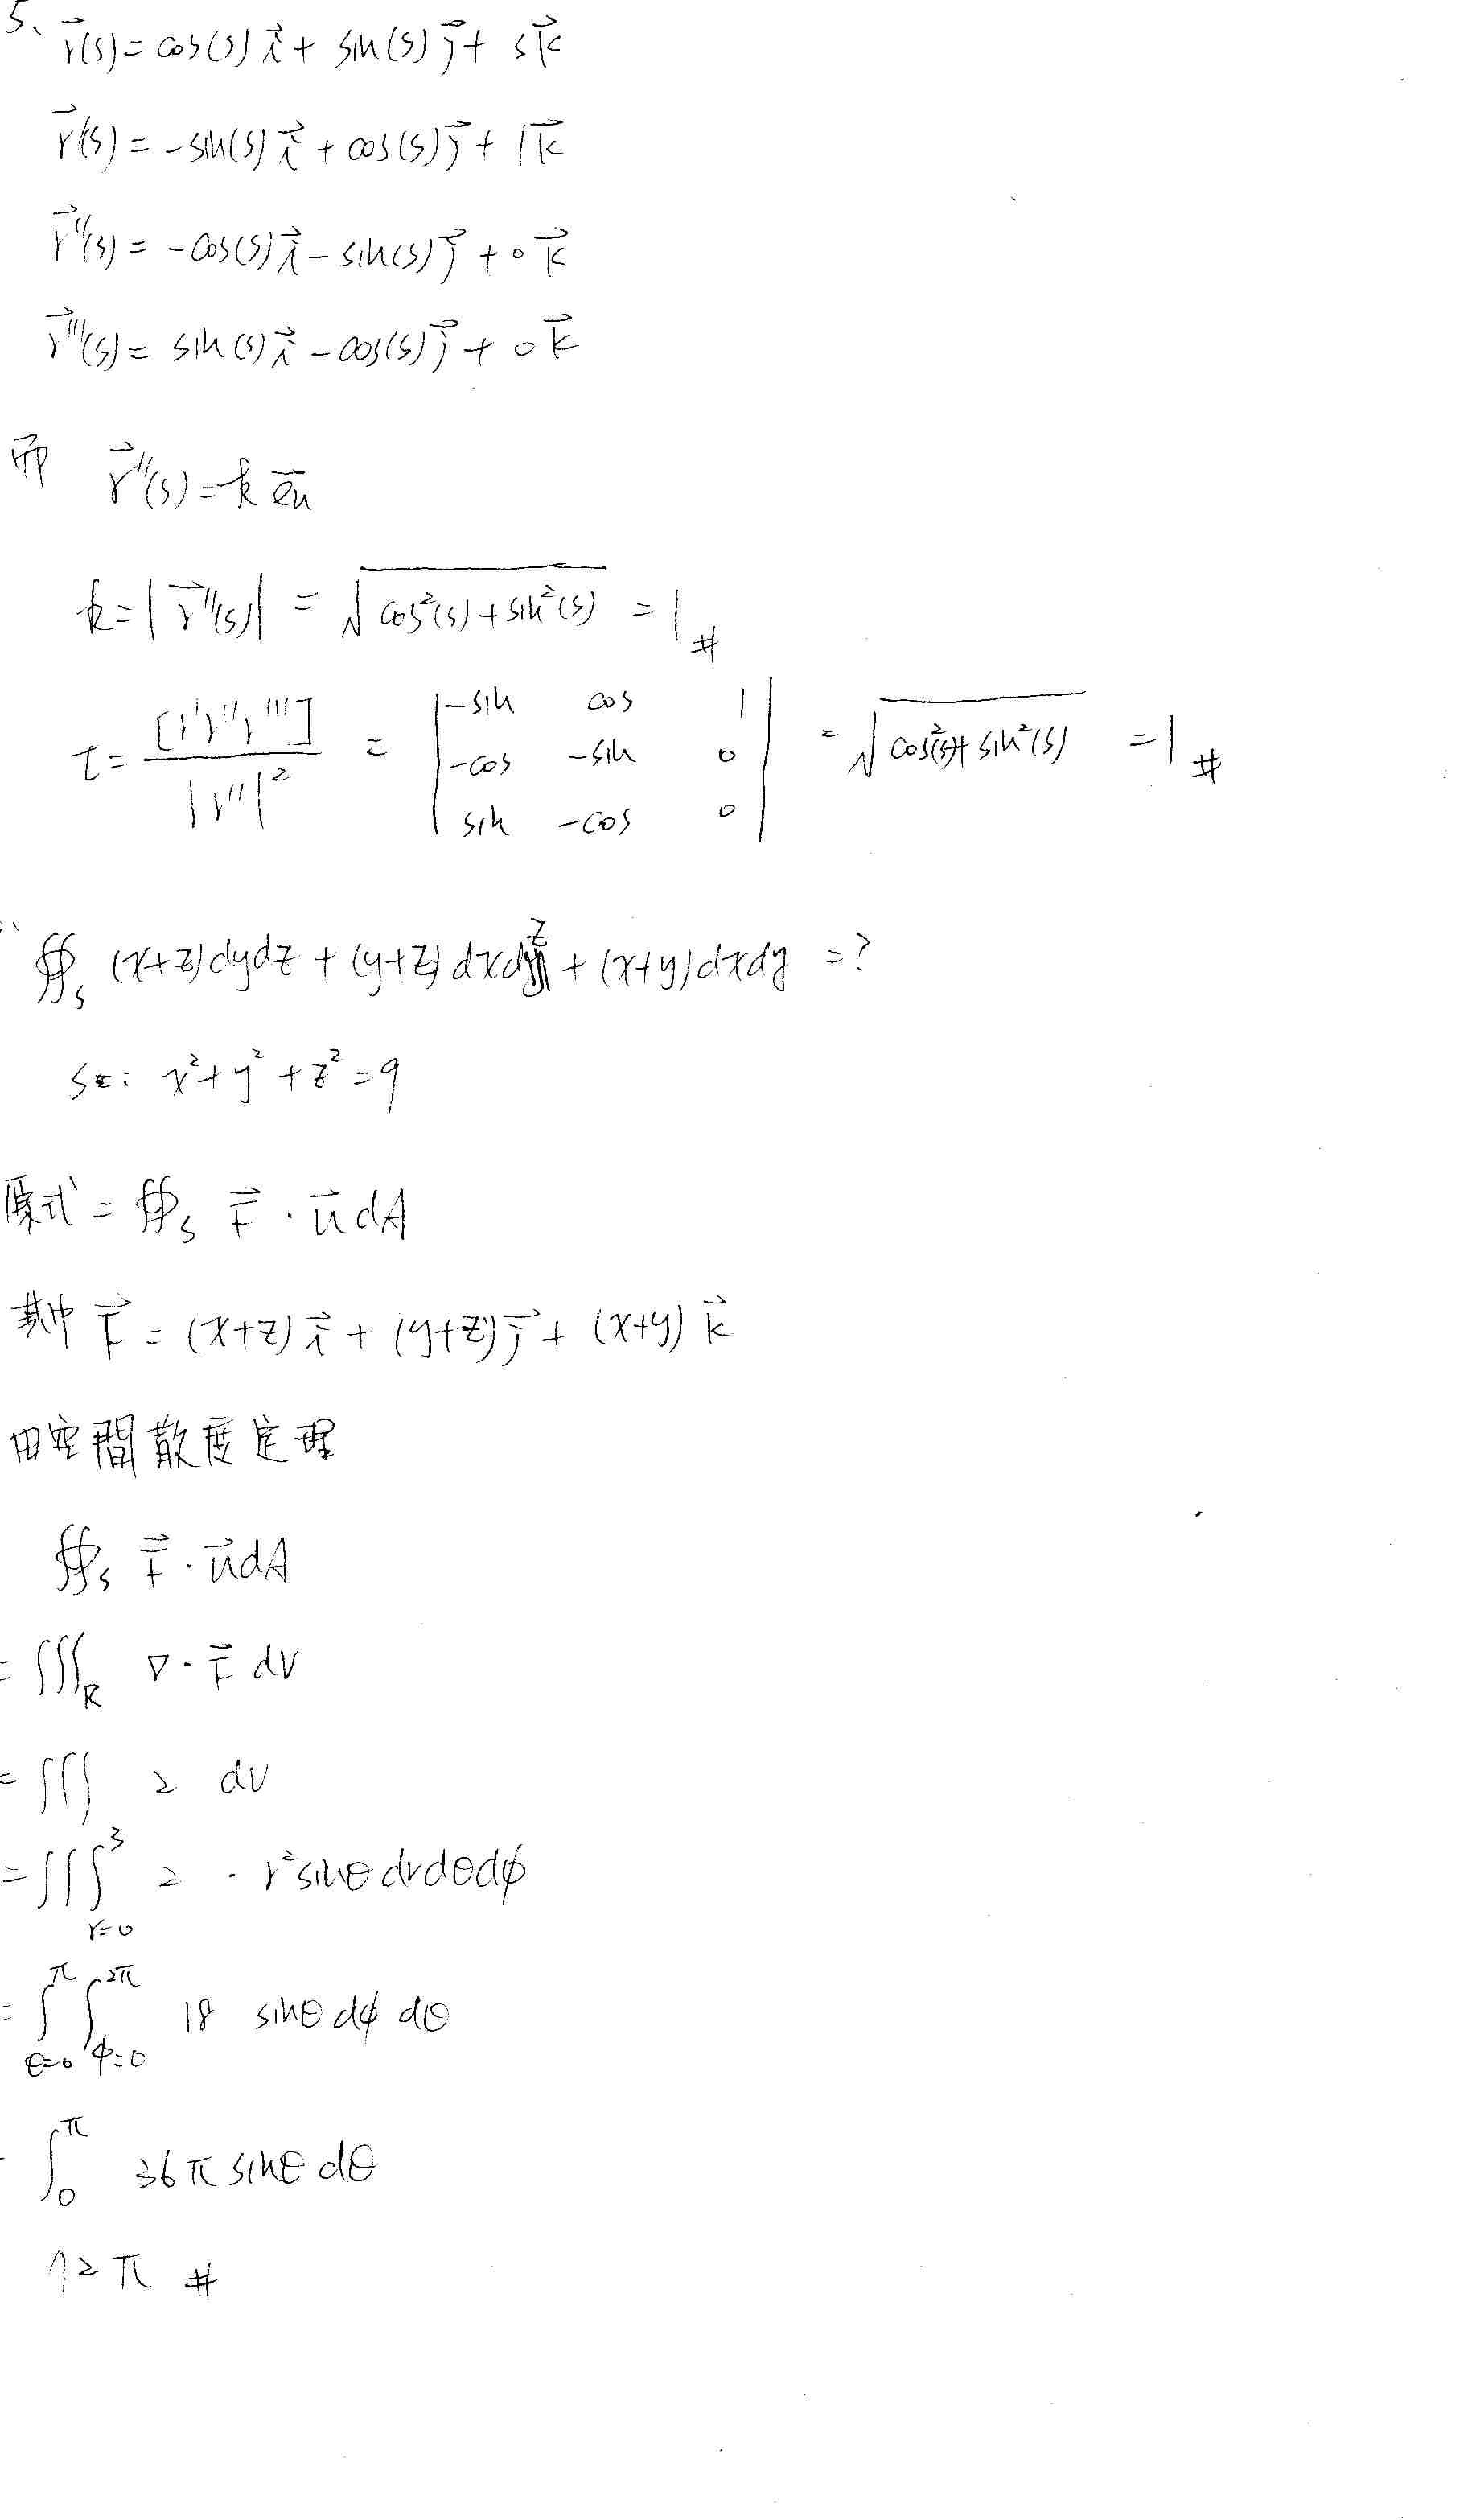 5、 r⃗(s) = cos(s) i⃗ + sin(s) j⃗ + s k⃗
r⃗'(s) = -sin(s) i⃗ + cos(s) j⃗ + 1 k⃗
r⃗''(s) = -cos(s) i⃗ - sin(s) j⃗ + 0 k⃗
r⃗'''(s) = sin(s) i⃗ - cos(s) j⃗ + 0 k⃗
而 r⃗''(s) = k e⃗n
k = |r⃗''(s)| = √(cos²(s) + sin²(s)) = 1 #
τ = [r' r'' r'''] / |r''|² = | -sin cos 1 | = √(cos²(s) + sin²(s)) = 1 #
| -cos -sin 0 |
| sin -cos 0 |
∯s (x+z) dydz + (y+z) dxdz + (x+y) dxdy = ?
s: x² + y² + z² = 9
原式 = ∯s F⃗ · n⃗ dA
其中 F⃗ = (x+z) i⃗ + (y+z) j⃗ + (x+y) k⃗
由空間散度定理
∯s F⃗ · n⃗ dA
= ∭R ∇ · F⃗ dV
= ∭ 2 dV
= ∫∫∫_{r=0}^{3} 2 · r² sinθ dr dθ dφ
= ∫_{θ=0}^{π} ∫_{φ=0}^{2π} 18 sinθ dφ dθ
= ∫_{0}^{π} 36π sinθ dθ
72π #